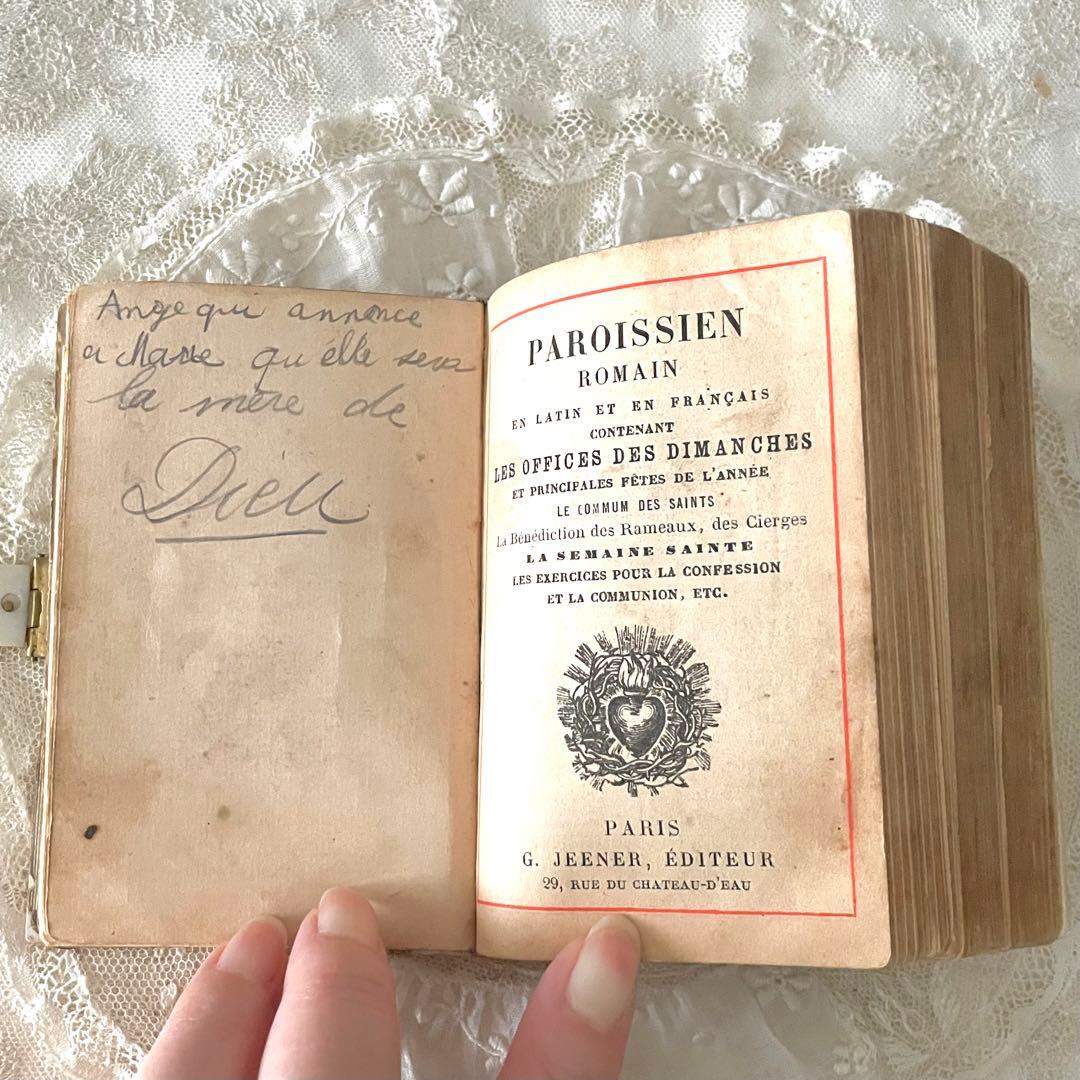 Ange qui annonce
a Marie qu'elle sera
la mère de
Dieu
PAROISSIEN
ROMAIN
EN LATIN ET EN FRANÇAIS
CONTENANT
LES OFFICES DES DIMANCHES
ET PRINCIPALES FÊTES DE L'ANNÉE
LE COMMUM DES SAINTS
La Bénédiction des Rameaux, des Cierges
LA SEMAINE SAINTE
LES EXERCICES POUR LA CONFESSION
ET LA COMMUNION, ETC.
PARIS
G. JEENER, ÉDITEUR
29, RUE DU CHATEAU-D'EAU